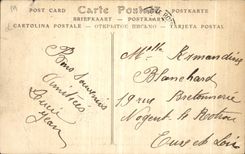 POST CARD Carte Postale POSTKARTE
BRIEFKAART
CARTOLINA POSTALE ОТКРЫТОЕ ПИСЬМО TARJETA POSTAL
Bons Souvenirs
Amitiés
Jean
Mlle
Blanchard
19 rue Bretonnerie
Nogent le Rotrou
Eure et Loir